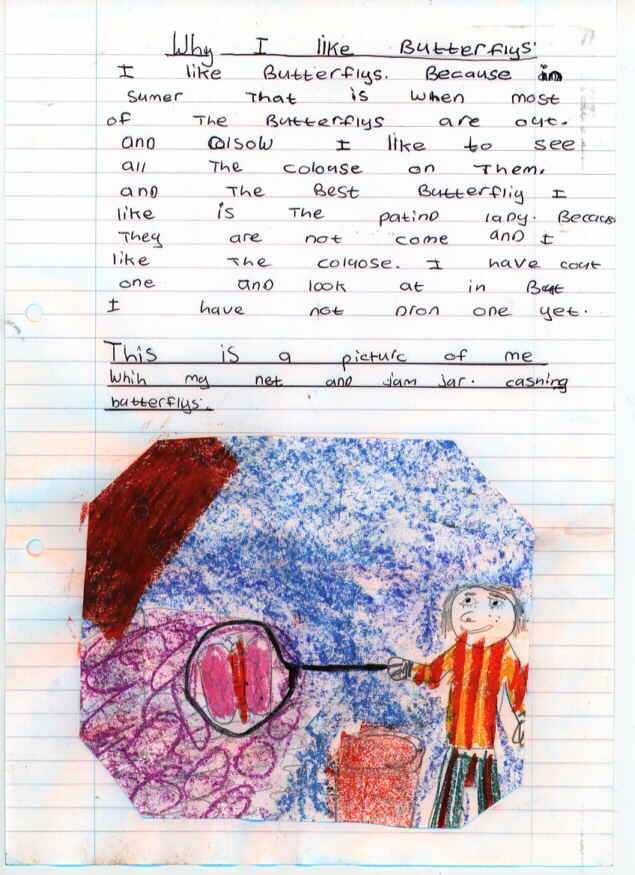 Why I like Butterflys
I like Butterflys. Because in
sumer That is when most
of The Butterflys are out.
and alsow I like to see
all The colouse on Them.
and The Best Butterfliy I
like is The patind lady. Becacus
They are not come and I
like The coluose. I have cout
one and look at in But
I have not dron one yet.
This is a picture of me
whih my net and jam jar. cashing
butterflys.